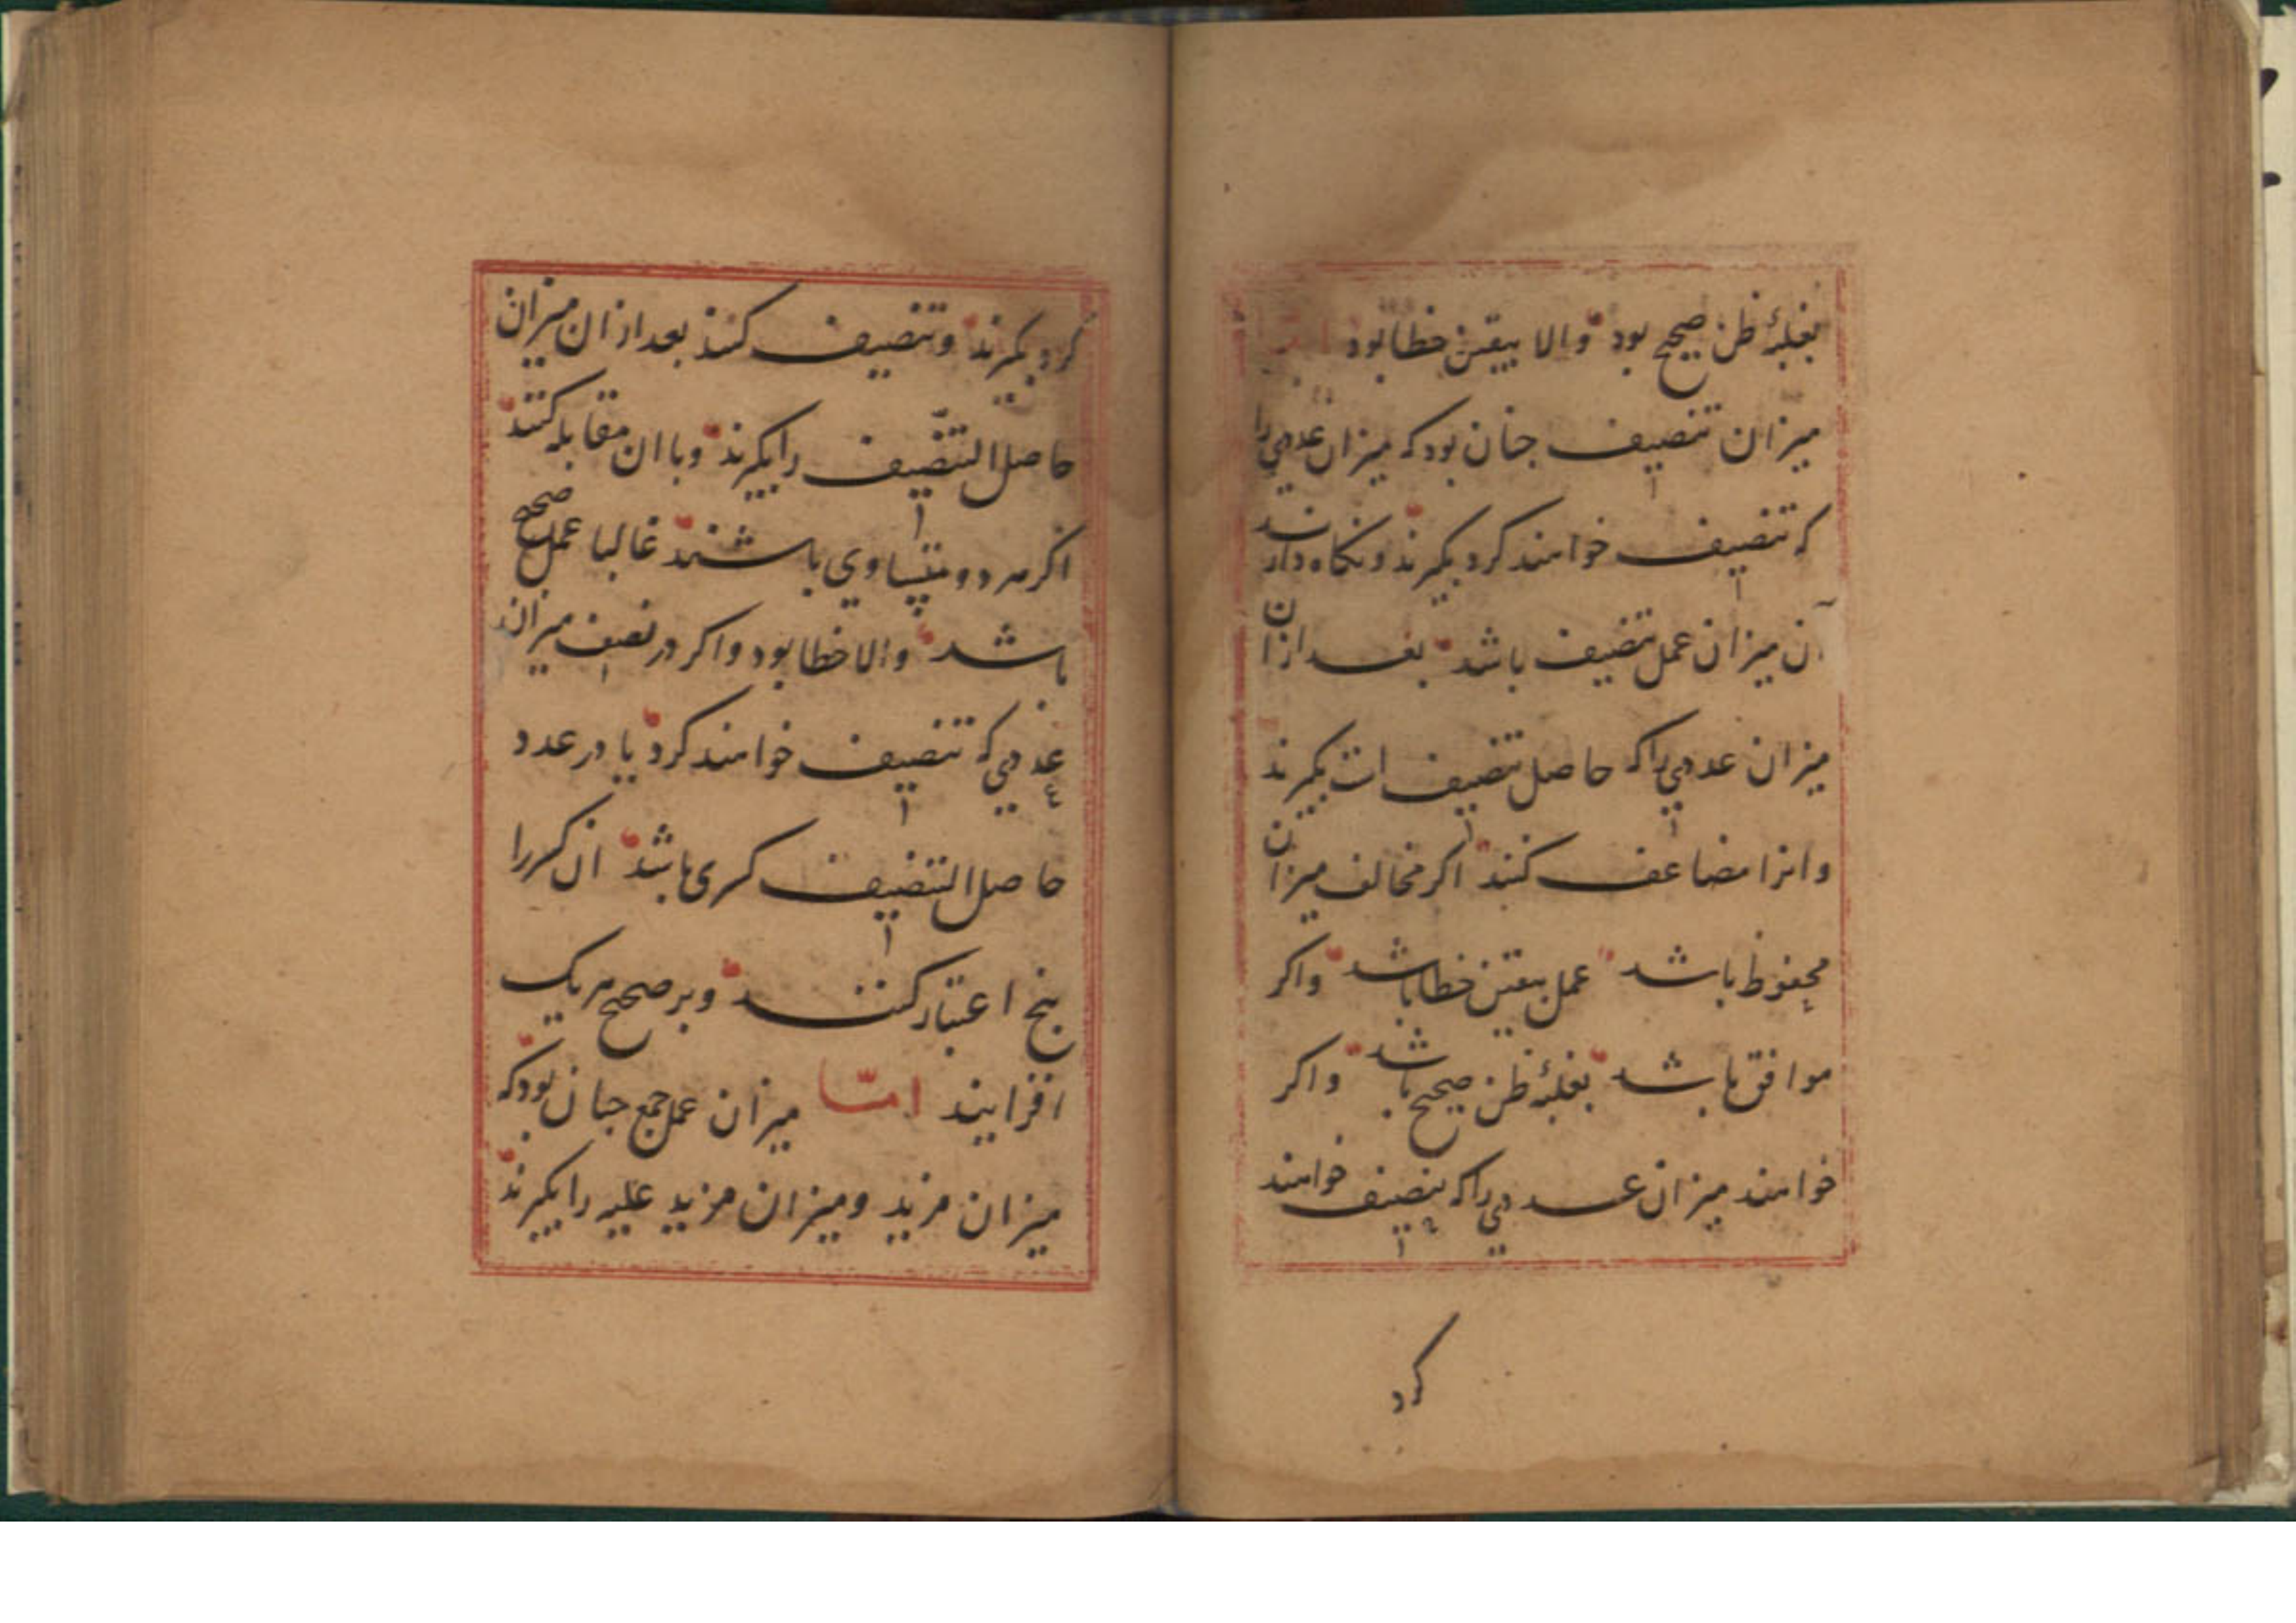 بغلبهٔ ظن صحیح بود والا بیقین خطا بود اما
میزان تنصیف جنان بود که میزان عددی را
که تنصیف خواهند کرد بکیرند ونکاه دارند
آن میزان عمل تنصیف باشد بعد ازان
میزان عددی را که حاصل تنصیف است بکیرند
وانرا مضاعف کنند اکر مخالف میزان
محفوظ باشد عمل بیقین خطا باشد واکر
موافق باشد بغلبهٔ ظن صحیح باشد واکر
خواهند میزان عددی را که تنصیف خواهند
کرد
کرد بکیرند وتنصیف کنند بعد ازان میزان
حاصل التنصیف را بکیرند وبا ان مقابله کنند
اکر هر دو متساوی باشند غالبا عمل صحیح
باشد والا خطا بود واکر در نصف میزان
عددی که تنصیف خواهند کرد یا در عدد
حاصل التنصیف کسری باشد ان کسر را
پنج اعتبار کنند وبر صحیح هر یک
افزایند امّا میزان عمل جمع جنان بود که
میزان مزید ومیزان مزید علیه را بکیرند